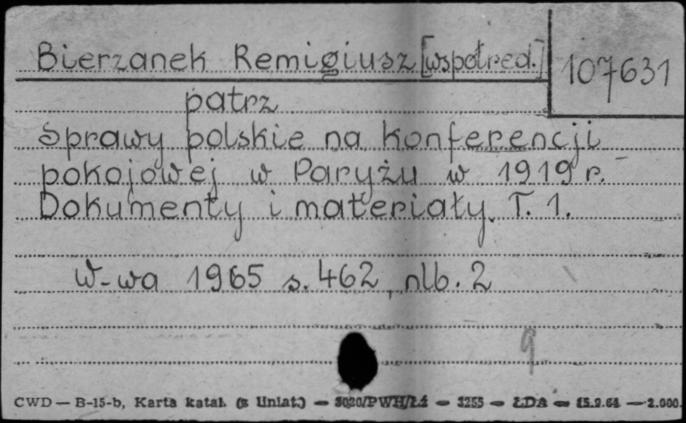 Bierzanek Remigiusz [współred.] 107631
patrz
Sprawy polskie na konferencji
pokojowej w Paryżu w 1919 r.
Dokumenty i materiały. T. 1.
W-wa 1965 s. 462, nlb. 2
9
CWD — B-15-b, Karta katal. (z liniat.) — 3020/PWH/Łź — 3255 — ŁDA — 15.9.64 — 2.000.